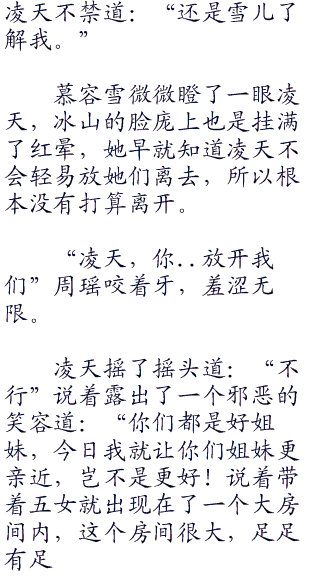 凌天不禁道：“还是雪儿了
解我。”
慕容雪微微瞪了一眼凌
天，冰山的脸庞上也是挂满
了红晕，她早就知道凌天不
会轻易放她们离去，所以根
本没有打算离开。
“凌天，你..放开我
们”周瑶咬着牙，羞涩无
限。
凌天摇了摇头道：“不
行”说着露出了一个邪恶的
笑容道：“你们都是好姐
妹，今日我就让你们姐妹更
亲近，岂不是更好！说着带
着五女就出现在了一个大房
间内，这个房间很大，足足
有足